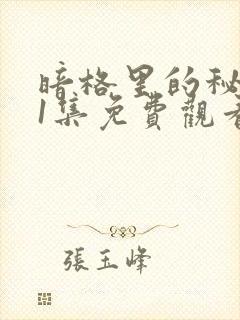 暗格里的秘
1集免費觀看
張玉峰